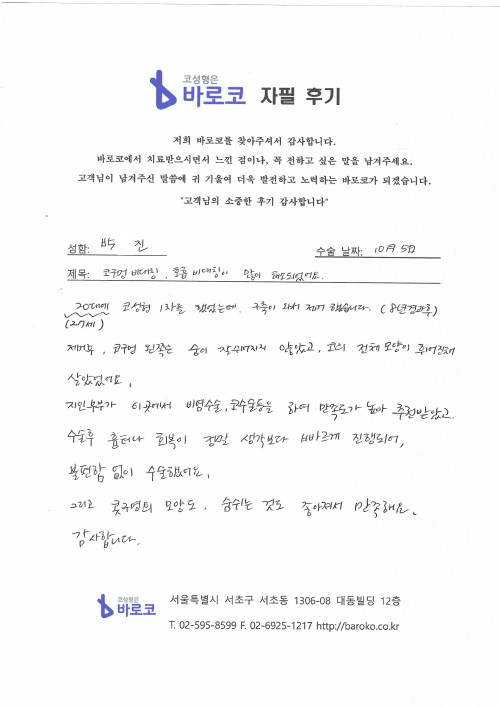 코성형은
바로코 자필 후기
저희 바로코를 찾아주셔서 감사합니다.
바로코에서 치료받으시면서 느낀 점이나, 꼭 전하고 싶은 말을 남겨주세요.
고객님이 남겨주신 말씀에 귀 기울여 더욱 발전하고 노력하는 바로코가 되겠습니다.
"고객님의 소중한 후기 감사합니다"
성함: 박 진 수술 날짜: 10月 5日
제목: 코구멍 비대칭, 콧볼 비대칭이 많이 해소되었어요.
20대에 코성형 1차를 했었는데, 구축이 와서 제거 했습니다. (8년경과후)
(27세)
제거후, 코구멍 왼쪽은 숨이 잘 쉬어지지 않았고, 코의 전체 모양이 휘어진채
살았었어요.
지인부부가 이곳에서 비염수술, 코수술등을 하여 만족도가 높아 추천받았고.
수술후 흉터나 회복이 정말 생각보다 빠르게 진행되어,
불편함 없이 수술했어요.
그리고 콧구멍의 모양도, 숨쉬는 것도 좋아져서 만족해요.
감사합니다.
코성형은
바로코
서울특별시 서초구 서초동 1306-08 대동빌딩 12층
T. 02-595-8599 F. 02-6925-1217 http://baroko.co.kr